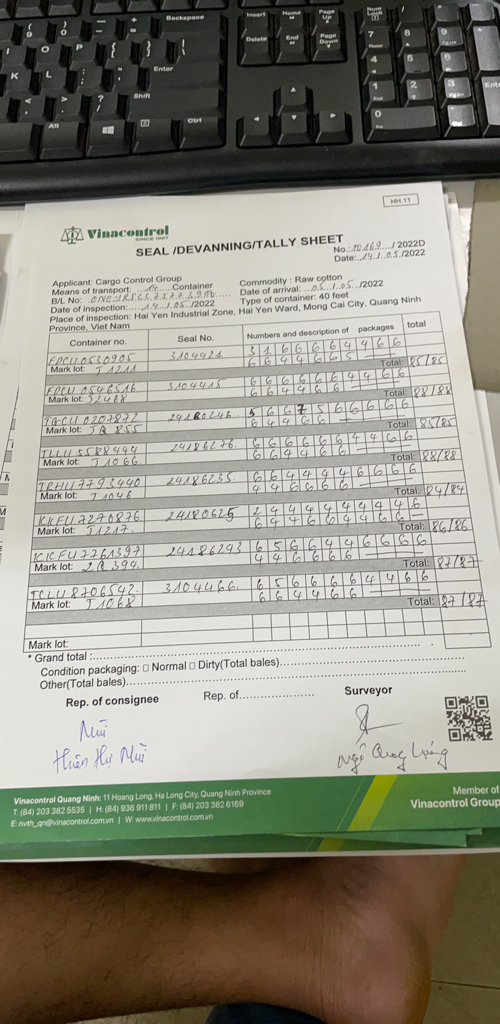 Backspace
Insert
Home
Page Up
Num Lock
Delete
End
Page Down
Enter
Shift
Alt
Ctrl
HH.11
Vinacontrol
SINCE 1957
SEAL /DEVANNING/TALLY SHEET
/ 2022D
Date: 14/.05./2022
Applicant: Cargo Control Group
Commodity : Raw cotton
Means of transport: 14 Container
Date of arrival: 05/.05./2022
B/L No:
Type of container: 40 feet
Date of inspection: 14/.05./2022
Place of inspection: Hai Yen Industrial Zone, Hai Yen Ward, Mong Cai City, Quang Ninh
Province, Viet Nam
Container no. Seal No. Numbers and description of packages total
FDCU0530905 3104421 3 1 6 6 6 6 4 4 6 6
6 6 4 4 6 6 5
Mark lot: J1211 Total: 85/85
FDCU 0546516 3104415 6 6 6 6 6 6 4 4 6 6
6 6 4 4 6 6
Mark lot: J2468 Total: 88/88
TGCU 0207872 24180246 5 6 6 7 5 6 6 6 6 6
6 4 4 6 6
Mark lot: JQ 855 Total: 85/85
TLLU 5588444 24186276 6 6 6 6 6 6 4 4 6 6
6 6 4 4 6 6
Mark lot: J1066 Total: 88/88
TRHU7793440 24186235 6 6 4 4 4 4 6 6 6 6
4 4 6 6 6 6
Mark lot: J1046 Total: 84/84
KKFU7270876 24180625 2 4 4 4 4 4 4 4 4 6
6 4 4 6 6 4 4 6 6
Mark lot: J1217 Total: 86/86
KKFU7761397 24186293 6 5 6 6 4 4 6 6 6 6
4 4 6 6 6 6
Mark lot: 2Q 394 Total: 87/87
TCLU8706542 3104466 6 5 6 6 6 6 4 4 6 6
6 6 4 4 6 6
Mark lot: J1068 Total: 87/87
Mark lot:
* Grand total :
Condition packaging: □ Normal □ Dirty(Total bales)
Other(Total bales)
Rep. of consignee Rep. of Surveyor
Vinacontrol Quang Ninh: 11 Hoang Long, Ha Long City, Quang Ninh Province
T: (84) 203 382 5535 | H: (84) 936 911 811 | F: (84) 203 382 6169
E: nvth_qn@vinacontrol.com.vn | W: www.vinacontrol.com.vn
Member of
Vinacontrol Group